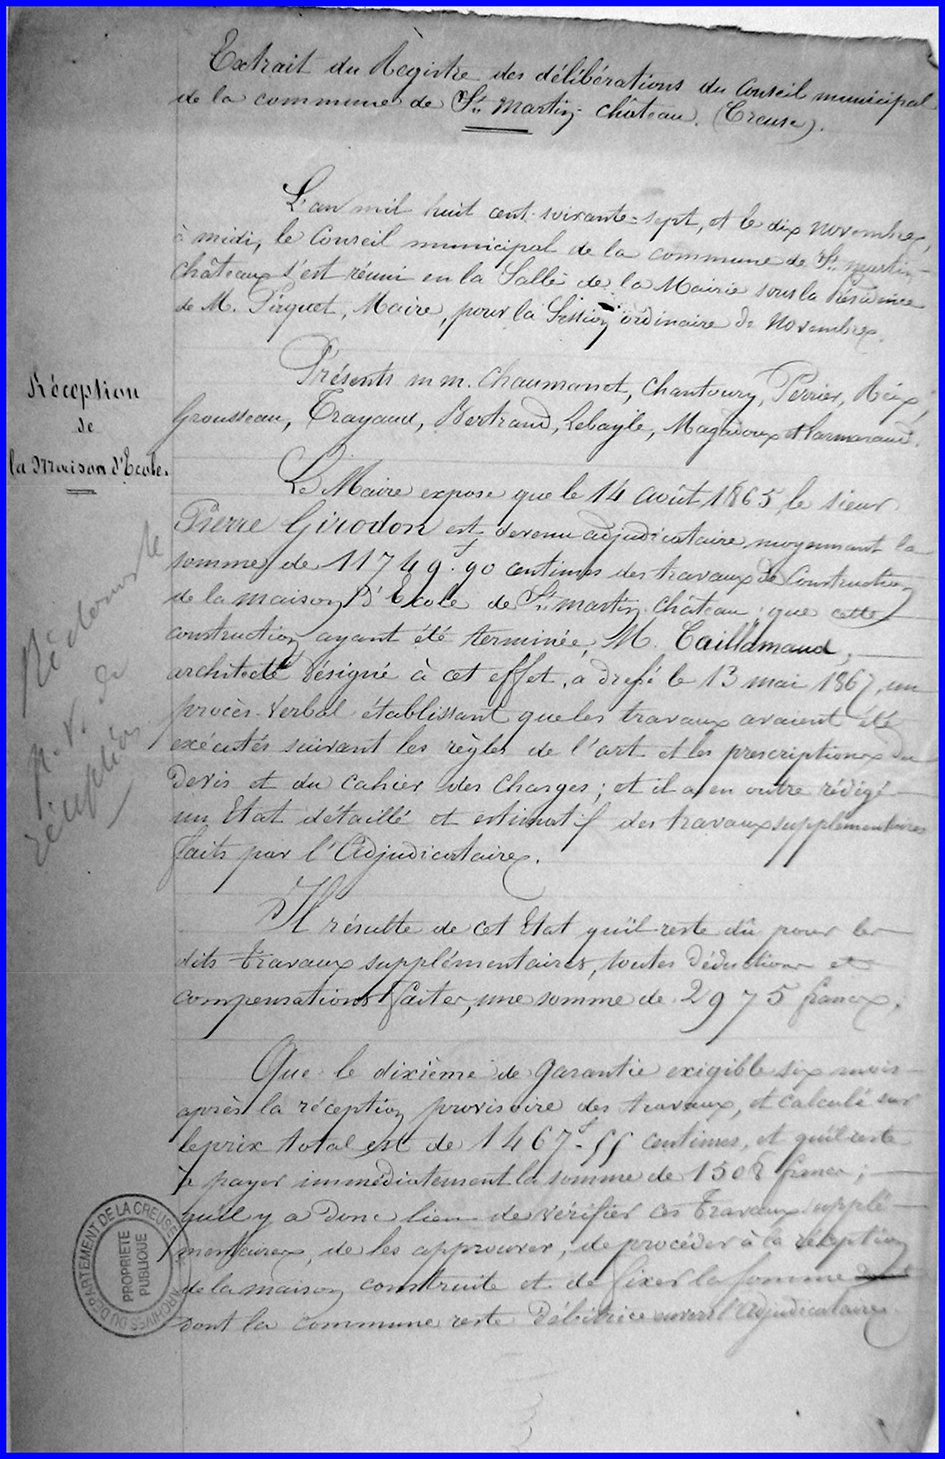 Extrait du Régistre des délibérations du Conseil municipal
de la commune de St. martin-château. (Creuse).
L'an mil huit cent soixante-sept, et le dix novembre,
à midi, le Conseil municipal de la commune de St. martin-
château s'est réuni en la Salle de la Mairie sous la Présidence
de M. Pirguet, Maire, pour la Session ordinaire de novembre.
Réception
de
la Maison d'Ecole.
Présents m m. Chaumanet, Chantoury, Perrier,
Grousseau, Trayaud, Bertrand, Lebayle, Magadoux et
Le Maire expose que le 14 août 1865, le sieur
Pierre Girodon est devenu adjudicataire moyennant la
somme de 11749 f. 90 centimes des travaux de Construction
de la maison d'Ecole de St. martin-château; que cette
construction, ayant été terminée, M. Taillamaud,
architecte désigné à cet effet, a dressé le 13 mai 1867, un
procès-verbal établissant que les travaux avaient été
exécutés suivant les règles de l'art et les prescriptions du
Devis et du cahier des charges; et il a en outre rédigé
un Etat détaillé et estimatif des travaux supplémentaires
faits par l'Adjudicataire.
p.v. de
réception
Il résulte de cet Etat qu'il reste dû pour les
dits travaux supplémentaires, toutes déductions et
compensations faites, une somme de 2975 francs.
Que le dixième de garantie exigible six mois
après la réception provisoire des travaux, et calculé sur
le prix total est de 1467 f - 55 centimes, et qu'il reste
à payer immédiatement la somme de 1508 francs;
qu'il y a donc lieu de vérifier ces travaux supplé-
mentaires, de les approuver, de procéder à la réception
de la maison construite et de fixer la somme
dont la commune reste Débitrice envers l'Adjudicataire.
ARCHIVES DU DEPARTEMENT DE LA CREUSE
PROPRIETE
PUBLIQUE